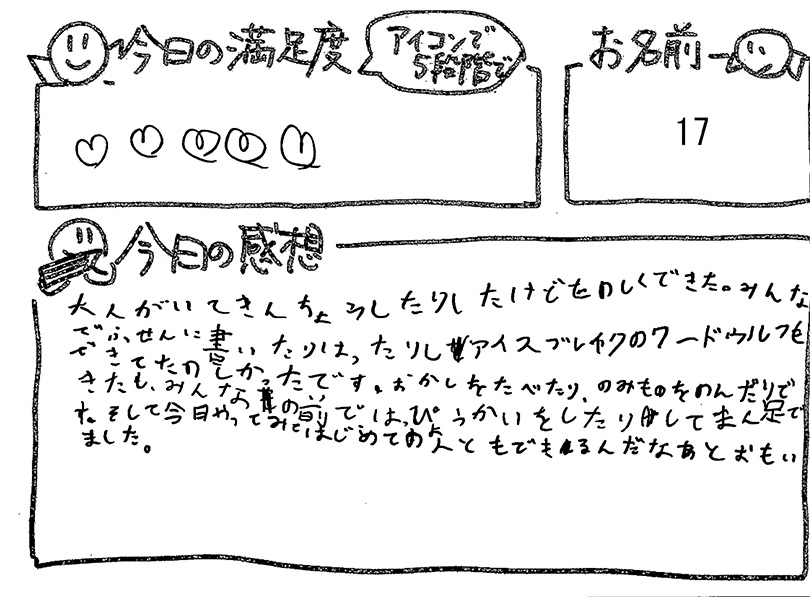 今日の満足度
アイコンで
5段階で
お名前
17
今日の感想
大人がいてきんちょうしたりしたけどたのしくできた。みんな
でふせんに書いたりはったりしてアイスブレイクのワードウルフを
できてたのしかったです。おかしをたべたり、のみものをのんだりで
きたも、みんなの前ではっぴょうかいをしたりして まん足で
す。そして今日やってみてはじめての人ともできるんだなあとおもい
ました。